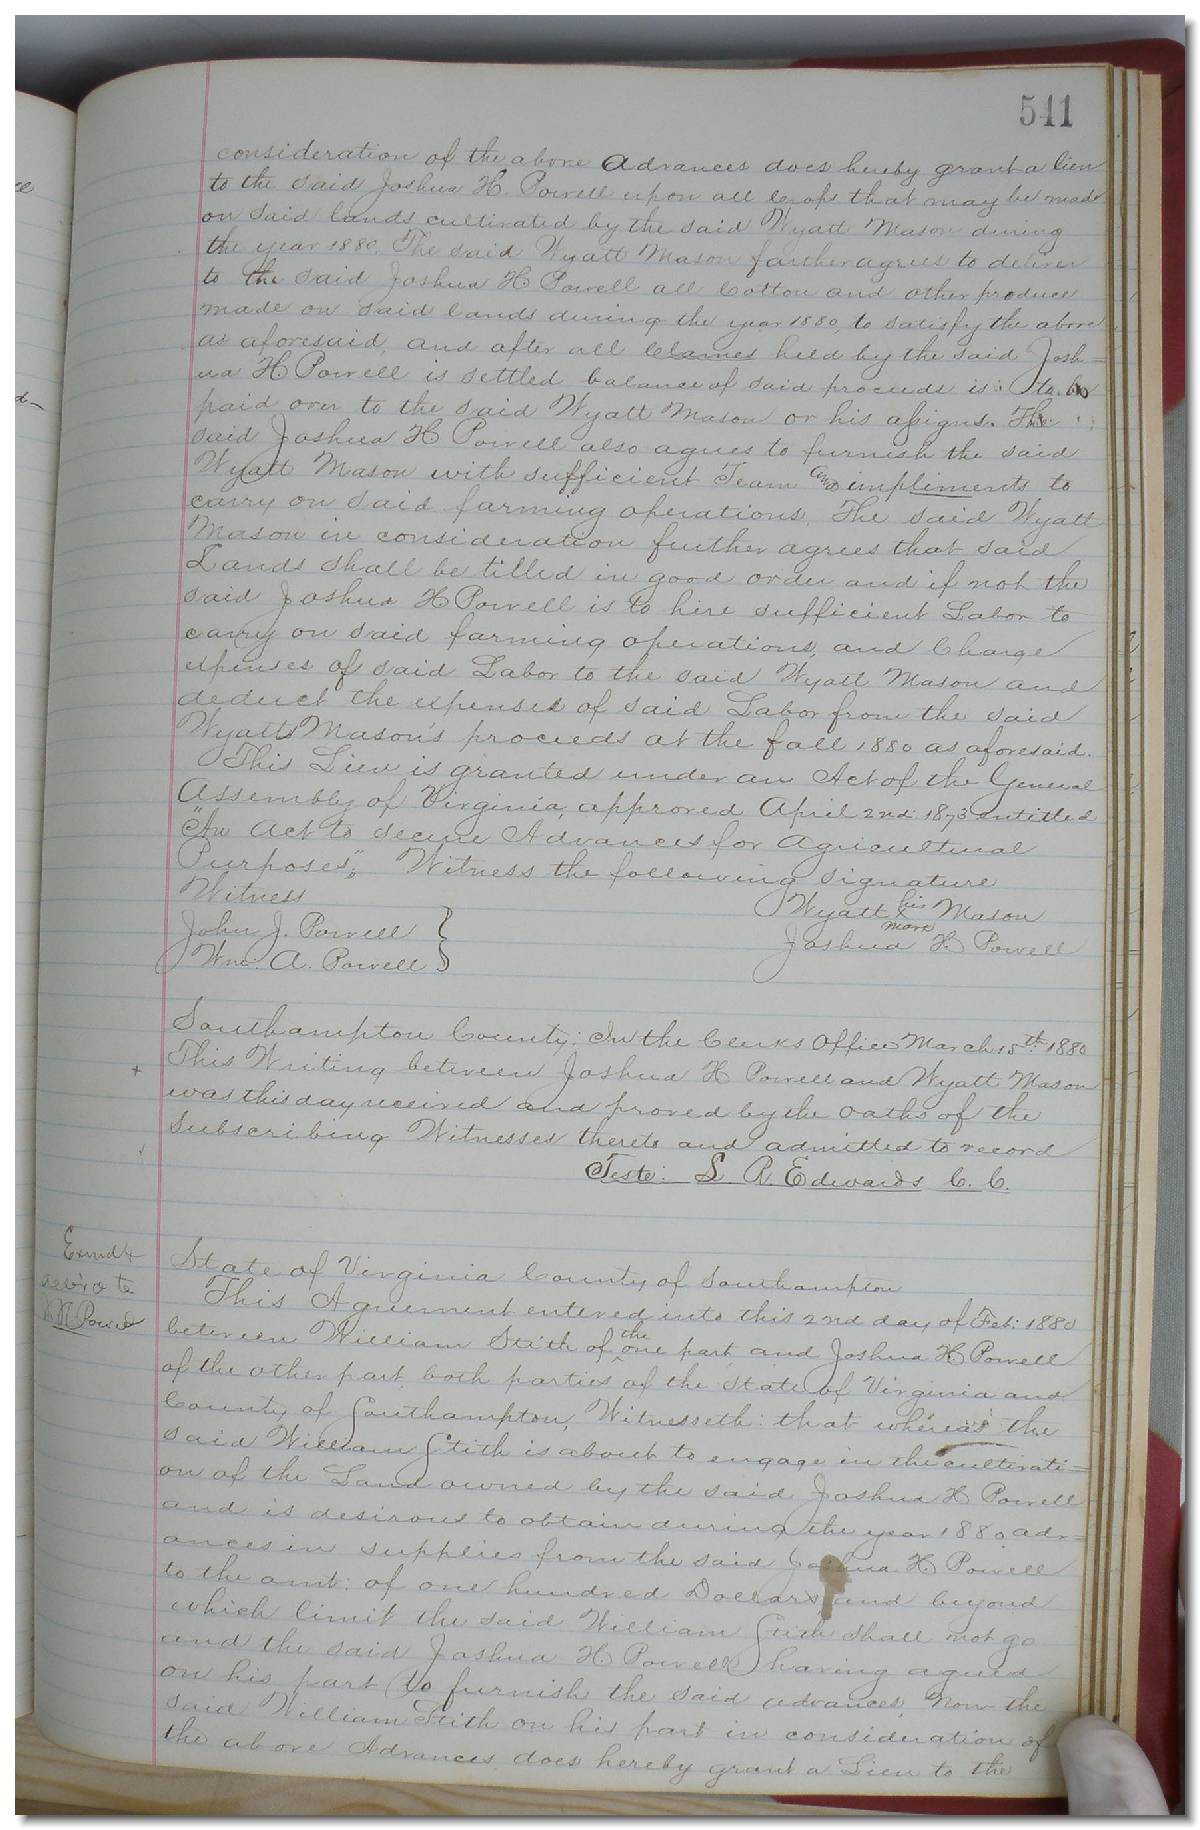 541
consideration of the above Advances does hereby grant a lien
to the said Joshua H. Powell upon all Crops that may be made
on said lands cultivated by the said Wyatt Mason during
the year 1880. The said Wyatt Mason farther agrees to deliver
to the said Joshua H Powell all Cotton and other produce
made on said lands during the year 1880, to satisfy the above
as aforesaid, and after all Claimes held by the said Josh=
ua H Powell is settled balance of said proceeds is to be
paid over to the said Wyatt Mason or his assigns. The
said Joshua H Powell also agues to furnish the said
Wyatt Mason with sufficient Team and impliments to
carry on said farming operations, The said Wyatt
Mason in consideration further agrees that said
Lands shall be tilled in good order and if not the
said Joshua H Powell is to hire sufficient Labor to
carry on said farming operations, and Charge
expenses of said Labor to the said Wyatt Mason and
deduct the expenses of said Labor from the said
Wyatt Mason's proceeds at the fall 1880 as aforesaid.
This Lien is granted under an Act of the General
Assembly of Virginia, approved April 2nd 1873 entitled
"An Act to secure Advances for Agricultural
Purposes", Witness the following signature
Witness
Wyatt his x mark Mason
John J. Powell
Joshua H. Powell
Wm. A. Powell
Southampton County: In the Clerks Office March 15th 1880
This Writing between Joshua H Powell and Wyatt Mason
was this day received and proved by the Oaths of the
Subscribing Witnesses thereto and admitted to record
Teste: L R. Edwards C. C.
Exmd &
to
Powell
State of Virginia County of Southampton
This Agreement entered into this 2nd day of Feb: 1880
between William Stith of the one part, and Joshua H Powell
of the other part both parties of the State of Virginia and
County of Southampton, Witnesseth: that whereas the
said William Stith is about to engage in the cultivati=
on of the Land owned by the said Joshua H Powell
and is desirous to obtain during the year 1880 adv=
ances in supplies from the said Joshua H. Powell
to the amt: of one hundred Dollars and beyond
which limit the said William Stith shall not go
and the said Joshua H Powell having agued
on his part to furnish the said advances, Now the
said William Stith on his part in consideration of
the above Advances does hereby grant a Lien to the